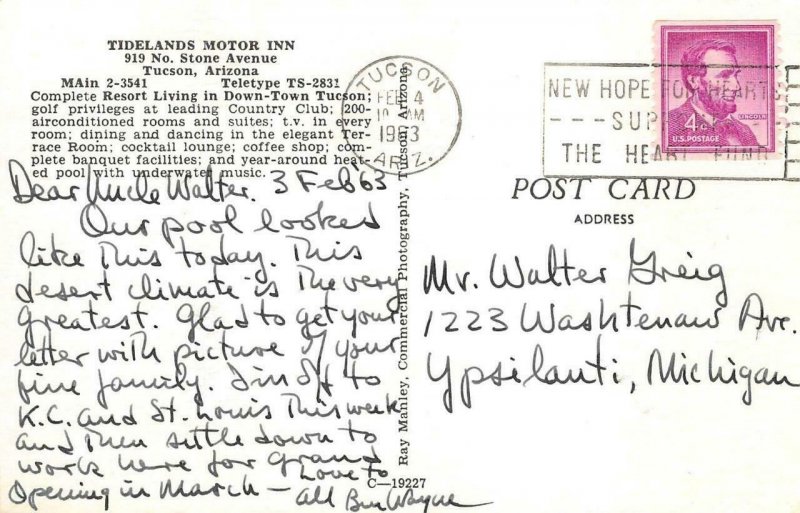 TIDELANDS MOTOR INN
919 No. Stone Avenue
Tucson, Arizona
MAin 2-3541 Teletype TS-2831
Complete Resort Living in Down-Town Tucson;
golf privileges at leading Country Club; 200-
airconditioned rooms and suites; t.v. in every
room; dining and dancing in the elegant Ter-
race Room; cocktail lounge; coffee shop; com-
plete banquet facilities; and year-around heat-
ed pool with underwater music.
Dear Uncle Walter. 3 Feb 63
Our pool looked
like this today. This
desert climate is the very
greatest. Glad to get your
letter with picture of your
fine family. I'm off to
K.C. and St. Louis this week
and then settle down to
work here for Grand
Opening in March —
Love to
all Ben Wayne
Ray Manley, Commercial Photography, Tucson, Arizona
C—19227
TUCSON
FEB 4
AM
1963
ARIZ.
NEW HOPE FOR HEARTS
--- SUP
THE HEART FUND
LINCOLN
4c
U.S. POSTAGE
POST CARD
ADDRESS
Mr. Walter Greig
1223 Washtenaw Ave.
Ypsilanti, Michigan